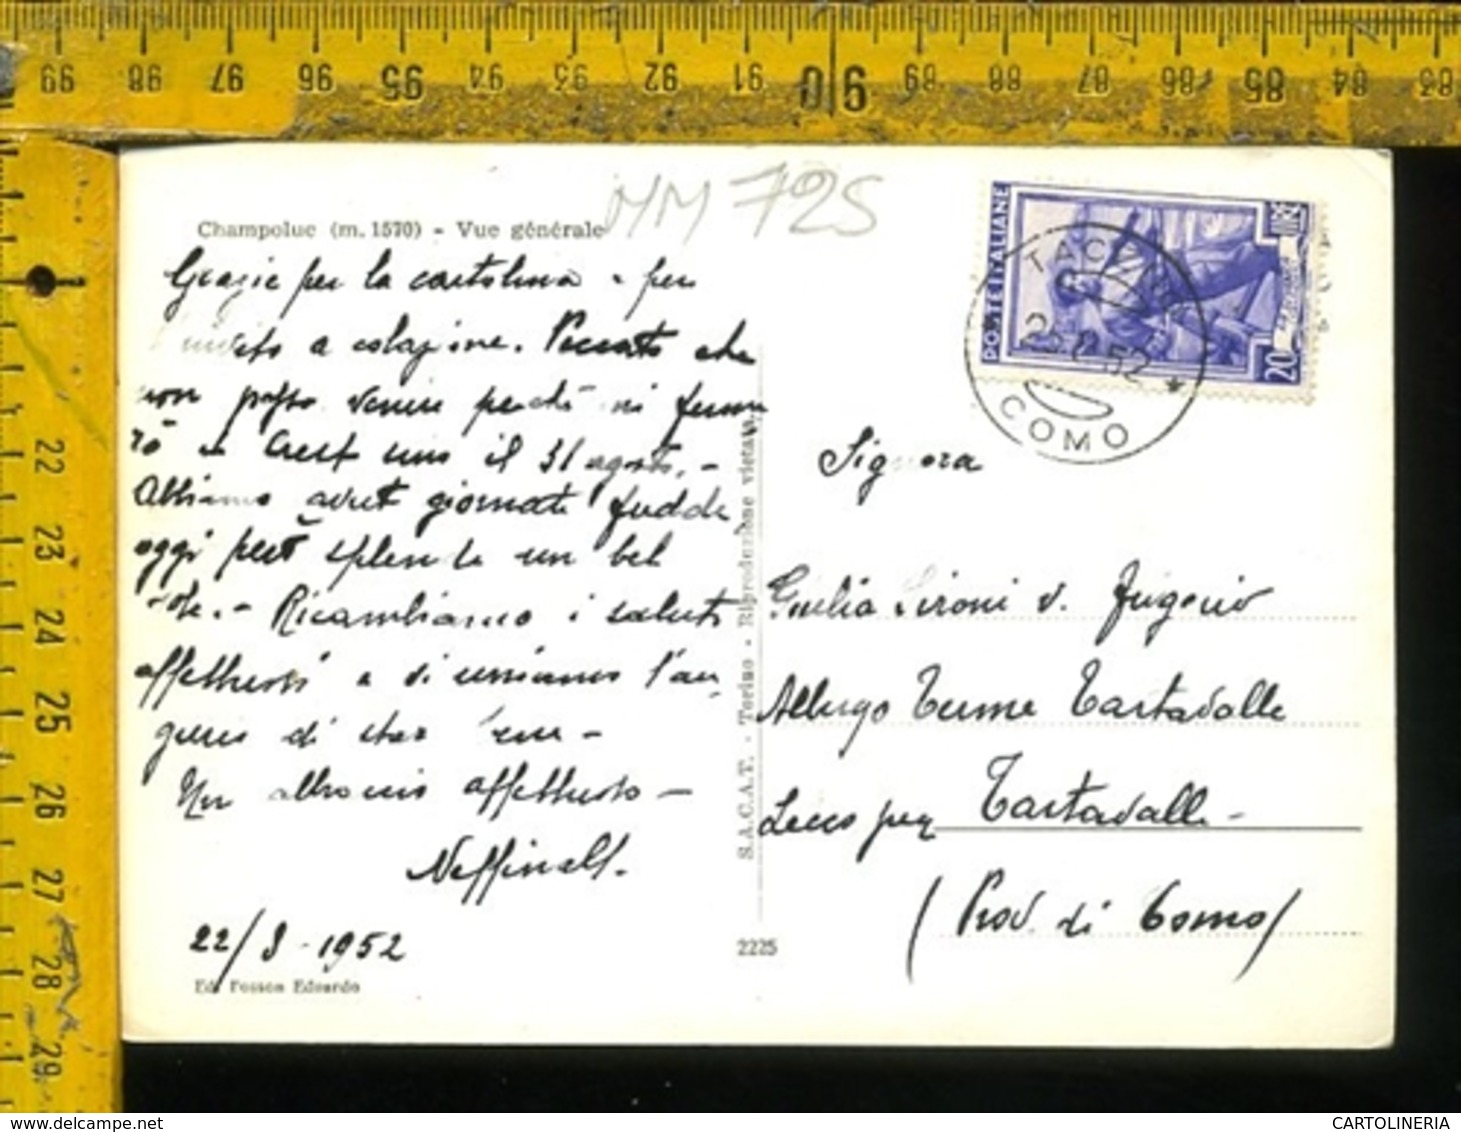 99 98 97 96 95 94 93 92 91 90 89 88 87 86 85 84 83
MM 725
Champoluc (m. 1570) - Vue générale
POSTE ITALIANE
20
COMO
Grazie per la cartolina e per
invito a colazione. Peccato che
non posso venire perché mi ferme
rò a Crest sino il 31 agosto. -
Abbiamo avute giornate fredde
oggi però splende un bel
sole. - Ricambiamo i saluti
affettuosi e vi uniamo l'au
gurio di star bene -
Un abbraccio affettuoso -
22/8-1952
Ed. Fosson Edoardo
S.A.C.A.T. - Torino - Riproduzione vietata
2225
Signora
Giulia Sironi v. Frigerio
Albergo Terme Tartavalle
Lecco per Tartavalle -
(Prov. di Como)
1
22
23
24
25
26
27
28
29
CARTOLINERIA